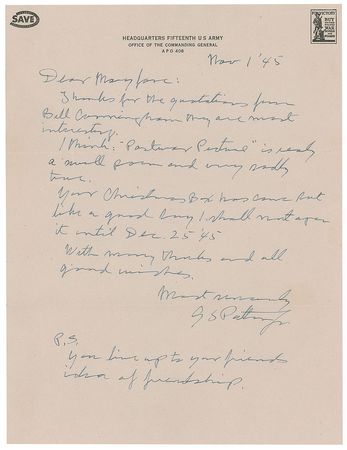 SAVE
HEADQUARTERS FIFTEENTH US ARMY
OFFICE OF THE COMMANDING GENERAL
APO 408
FOR VICTORY
BUY
WAR
Nov 1 '45
Dear
Thanks for the quotations from
Bell Cunningham they are most
interesting.
I think "Postwar Picture" is really
a small poem and very sadly
true.
Your Christmas Box has come but
like a good boy I shall not open
it until Dec. 25 '45
With many thanks and all
good wishes.
Most sincerely
G S Patton Jr
P.S.
You live up to your friends
idea of friendship.